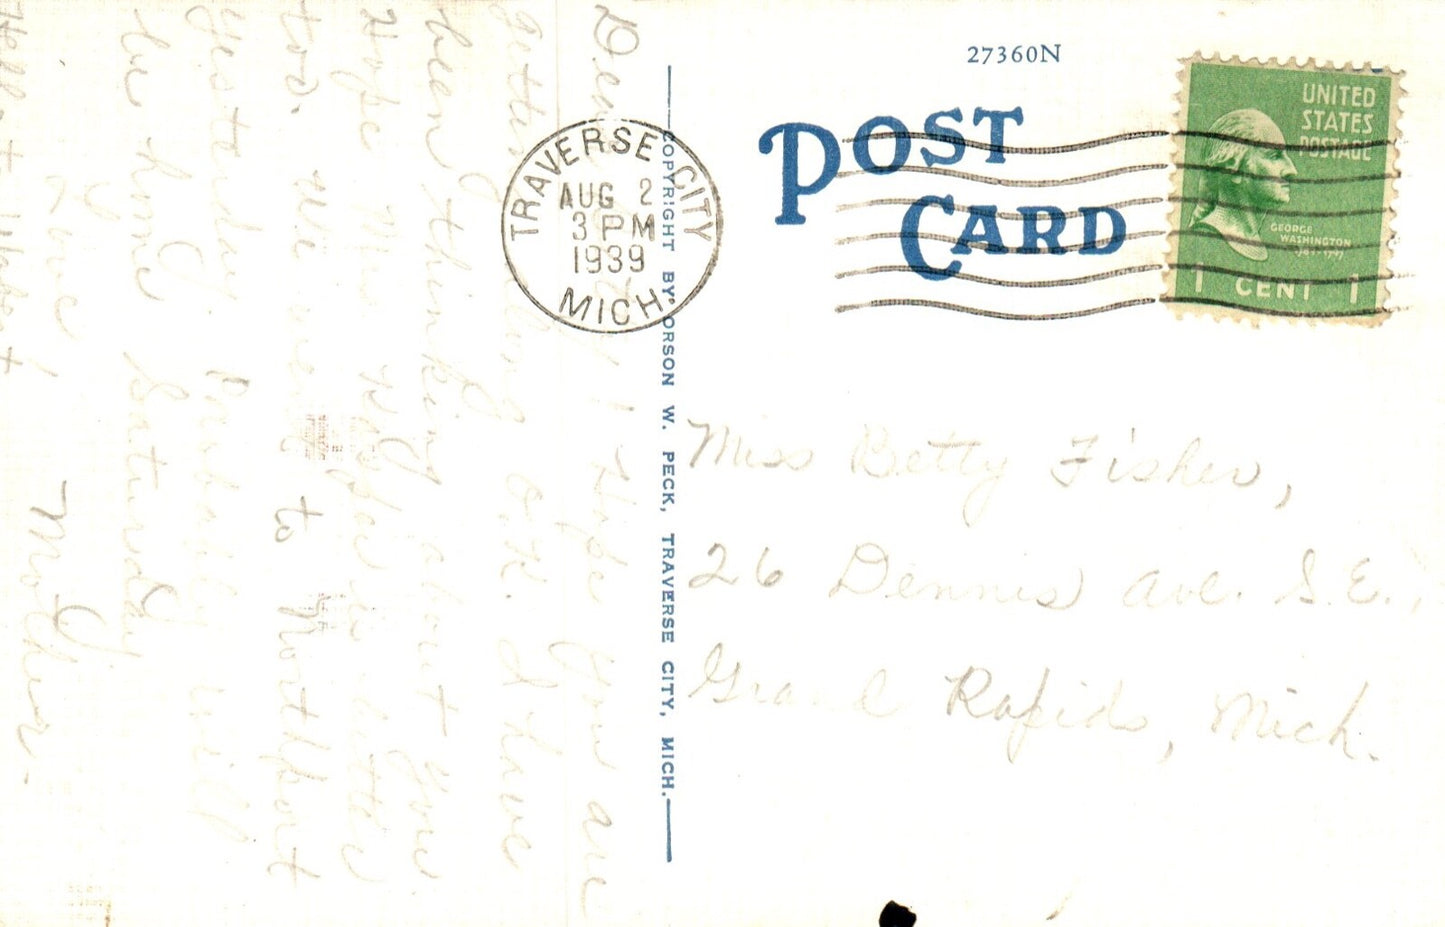 27360N
POST
CARD
UNITED
STATES
POSTAGE
GEORGE
WASHINGTON
1 CENT 1
TRAVERSE CITY
AUG 2
3 PM
1939
MICH.
COPYRIGHT BY ORSON W. PECK, TRAVERSE CITY, MICH.
Miss Betty Fisher,
26 Dennis Ave. S.E.,
Grand Rapids, Mich.
I Hope you are
getting along O.K. I have
been thinking about you
Hope you will be better
too. We went to Northport
yesterday. Probably will
be home Saturday
Love
Mother.